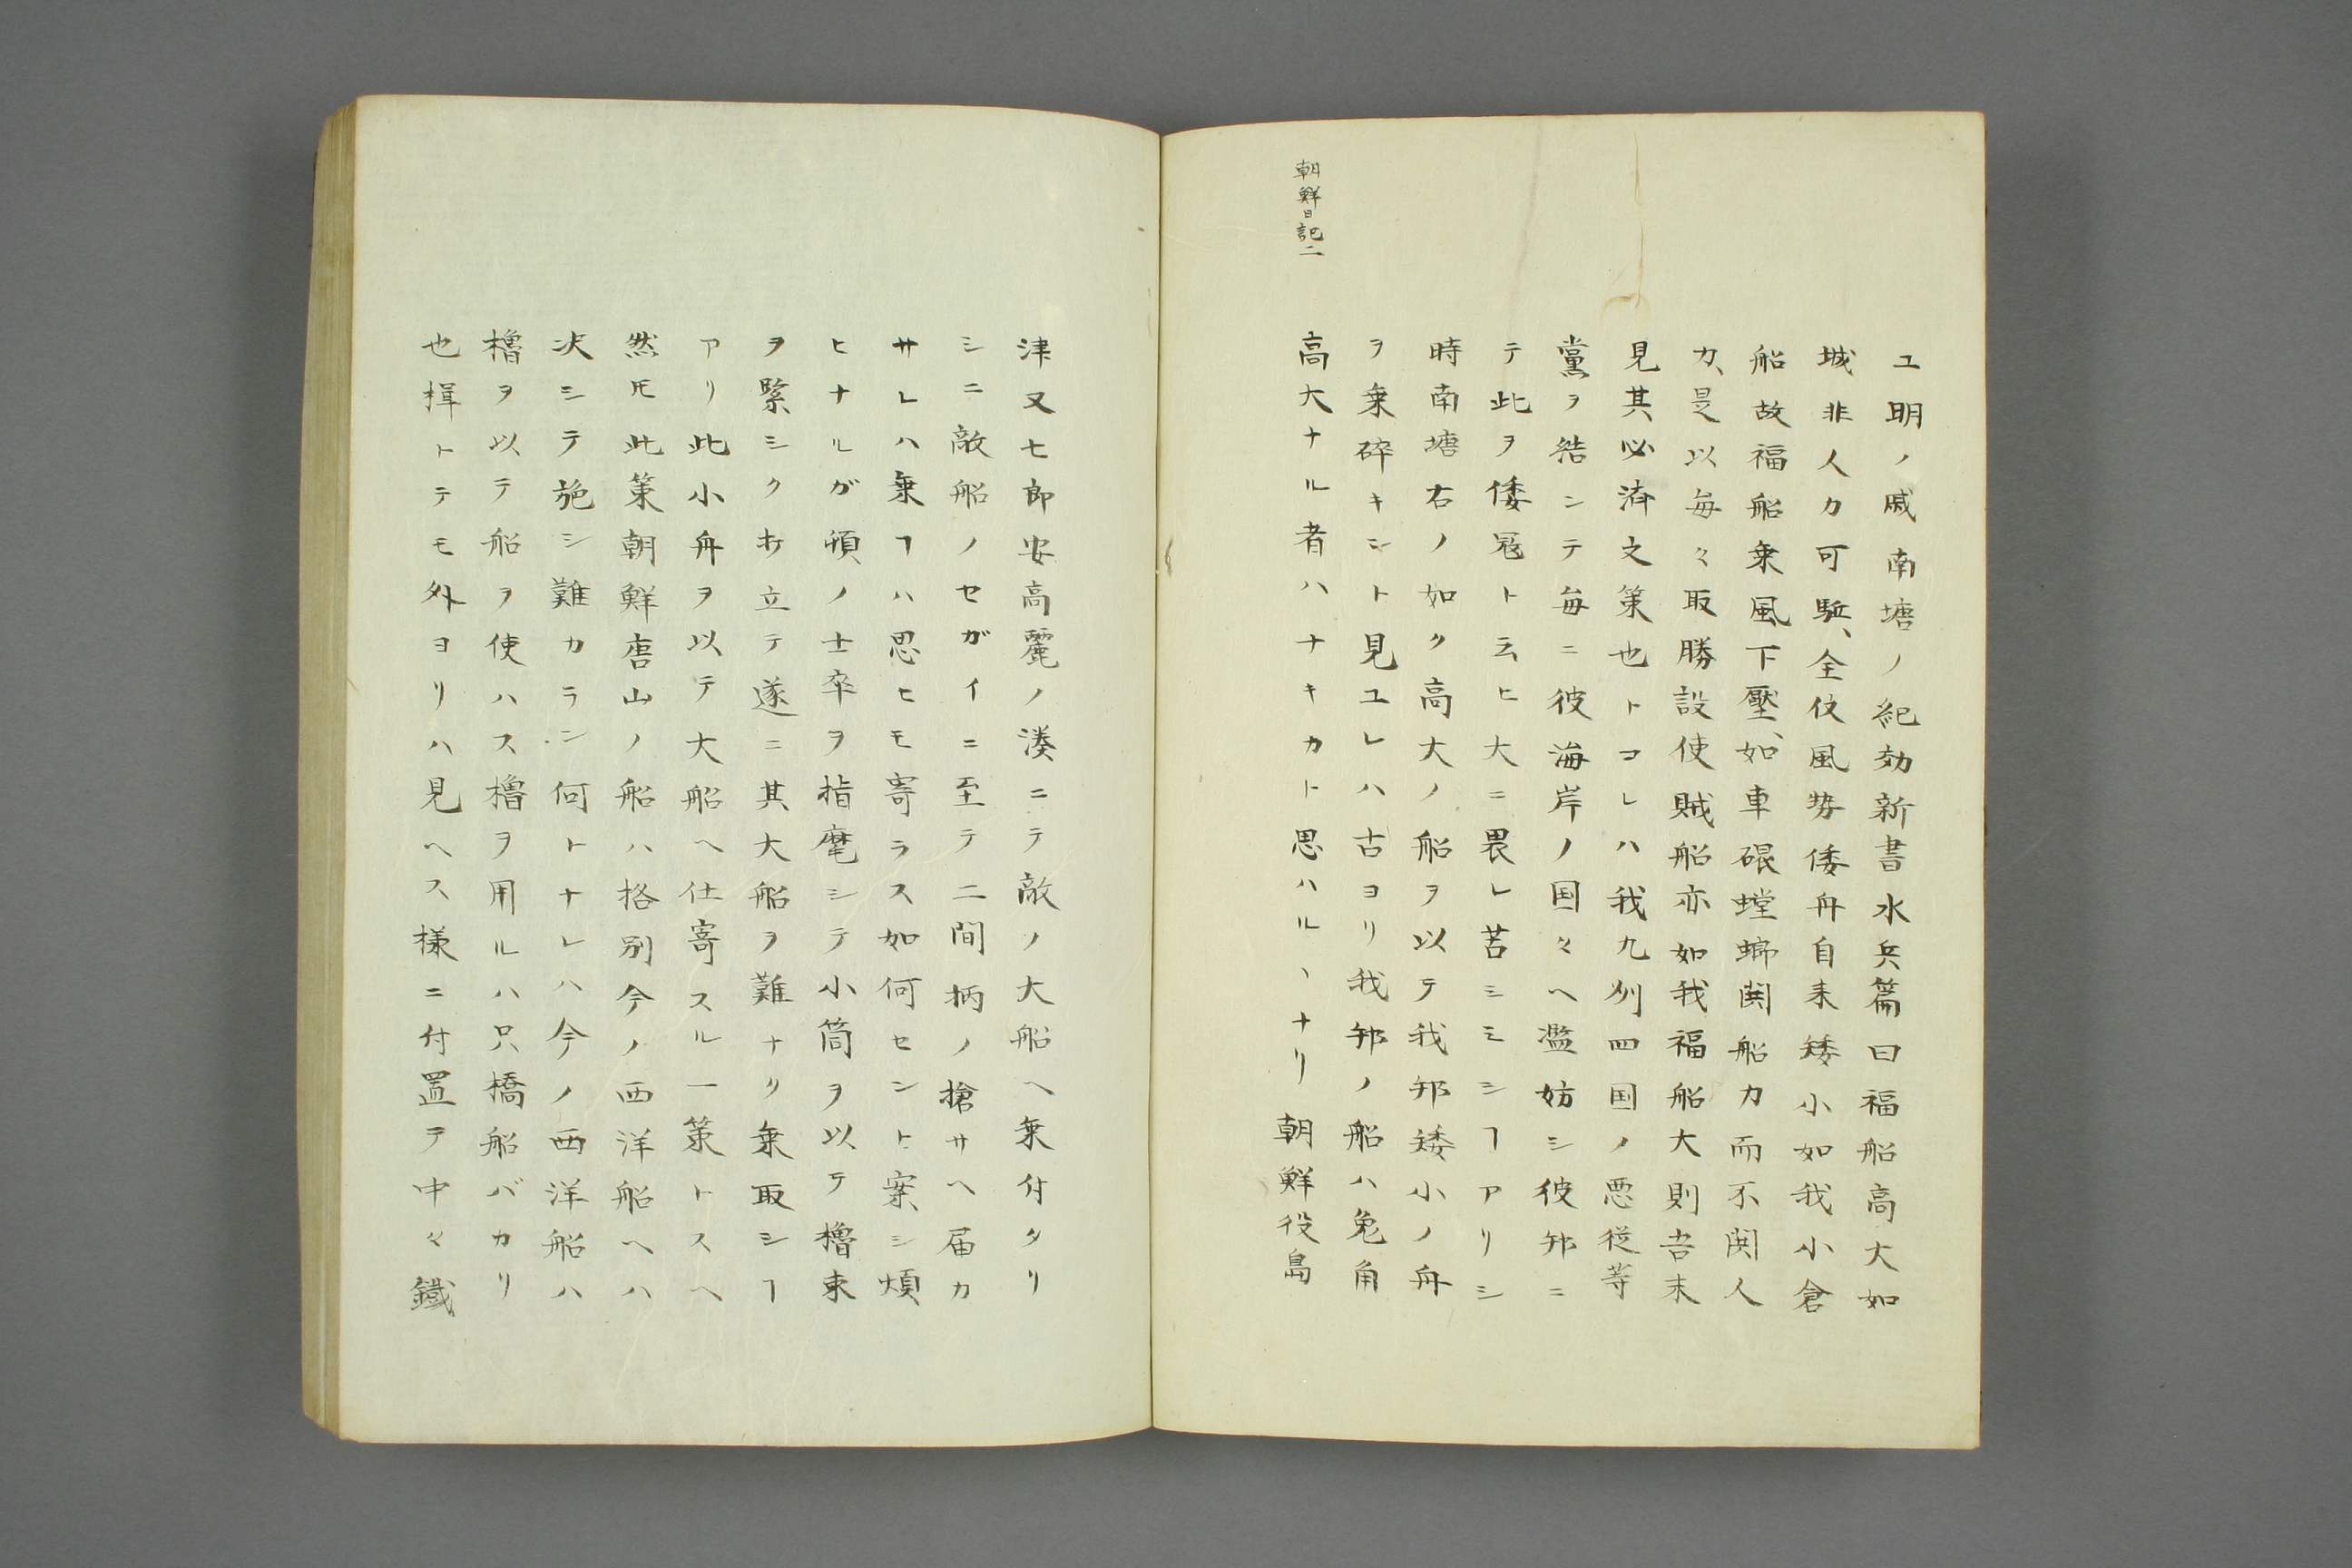 ユ明ノ戚南塘ノ紀効新書水兵篇曰福船高大如
城非人力可駈、全仗風势倭舟自来矮小如我小倉
船故福船乗風下壓、如車碾螳螂鬪船力而不鬪人
力、是以毎々取勝設使賊船亦如我福船大則吾未
見其必済之策也トコレハ我九州四国ノ悪従等
黨ヲ結ンテ毎ニ彼海岸ノ国々ヘ濫妨シ彼邦ニ
テ此ヲ倭冦ト云ヒ大ニ畏レ苦シミシヿアリシ
時南塘右ノ如ク高大ノ船ヲ以テ我邦矮小ノ舟
ヲ乗碎キシト見ユレハ古ヨリ我邦ノ船ハ兎角
朝鮮日記二
高大ナル者ハナキカト思ハルヽナリ朝鮮役島
津又七郎安高麗ノ湊ニテ敵ノ大船ヘ乗付タリ
シニ敵船ノセガイニ至テ二間柄ノ搶サヘ届カ
サレハ乗ヿハ思ヒモ寄ラス如何セント案シ煩
ヒナルガ頓ノ士卒ヲ指麾シテ小筒ヲ以テ櫓束
ヲ緊シク打立テ遂ニ其大船ヲ難ナク乗取シヿ
アリ此小舟ヲ以テ大船ヘ仕寄スル一策トスヘ
然𪜈此策朝鮮唐山ノ船ハ格別今ノ西洋船ヘハ
决シテ施シ難カラン何トナレハ今ノ西洋船ハ
櫓ヲ以テ船ヲ使ハス櫓ヲ用ルハ只橋船バカリ
也楫トテモ外ヨリハ見ヘス様ニ付置テ中々鐵